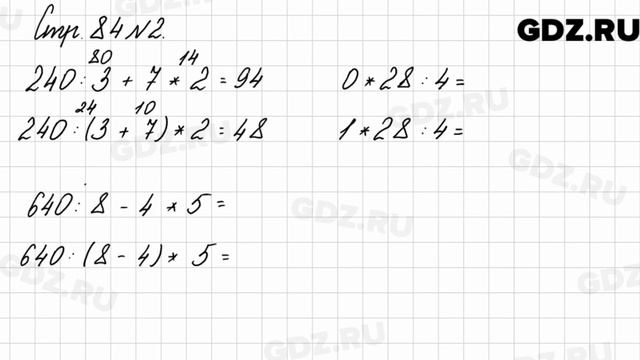 Стр. 84 №2.
GDZ.RU
80 14
240 : 3 + 7 * 2 = 94
0 * 28 : 4 =
24 10
240 : (3 + 7) * 2 = 48
1 * 28 : 4 =
640 : 8 - 4 * 5 =
640 : (8 - 4) * 5 =
GDZ.RU
GDZ.RU
GDZ.RU
GDZ.RU
GDZ.RU
GDZ.RU
GDZ.RU